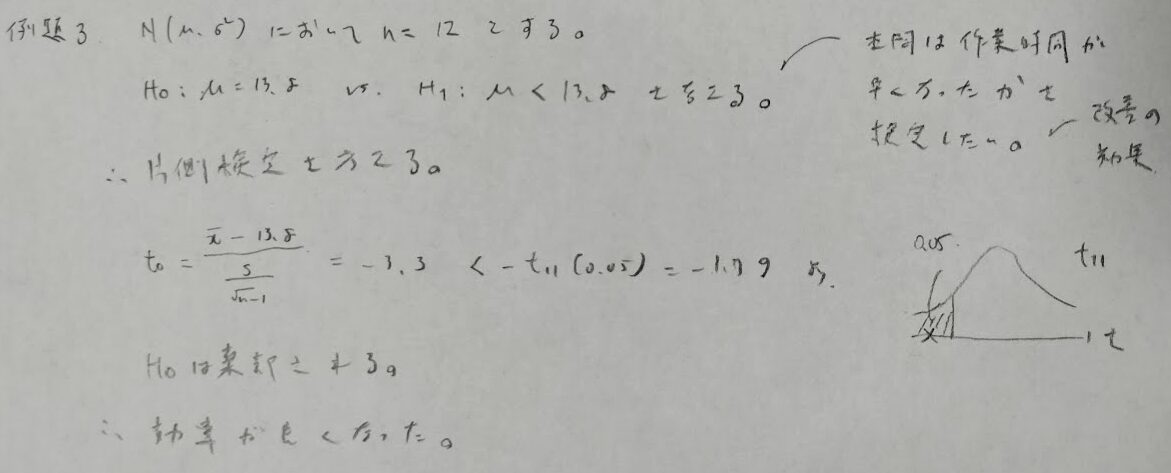 例題3 N(μ, σ²) において n = 12 とする。
H₀ : μ = 13.8 vs. H₁ : μ < 13.8 を考える。
本問は作業時間が
早くなったかを
検定したい。
改善の
効果
∴ 片側検定を考える。
t₀ = (x̄ - 13.8) / (s / √n-1) = -3.3 < -t₁₁(0.05) = -1.79 より,
0.05
t₁₁
t
H₀は棄却される。
∴ 効率が良くなった。